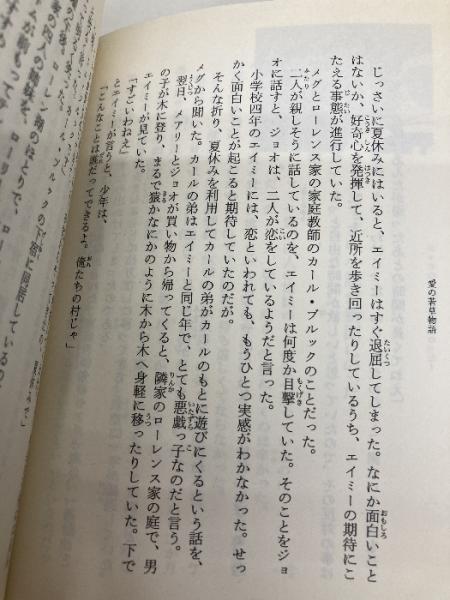 愛の若草物語
じっさいに夏休みにはいると、エイミーはすぐ退屈してしまった。なにか面白いこと
はないか、好奇心を発揮して、近所を歩き回ったりしているうち、エイミーの期待にこ
たえる事態が進行していた。
メグとローレンス家の家庭教師のカール・ブルックのことだった。
二人が親しそうに話しているのを、エイミーは何度か目撃していた。そのことをジョ
オに話すと、ジョオは、二人が恋をしているようだと言った。
小学校四年のエイミーには、恋といわれても、もうひとつ実感がわかなかった。せっ
かく面白いことが起こると期待していたのだが。
そんな折り、夏休みを利用してカールの弟がカールのもとに遊びにくるという話を、
メグから聞いた。カールの弟はエイミーと同じ年で、とても悪戯っ子なのだと言う。
翌日、メアリーとジョオが買い物から帰ってくると、隣家のローレンス家の庭で、男
の子が木に登り、まるで猿かなにかのように木から木へ身軽に移ったりしていた。下で
エイミーが見ていた。
「すごいわねえ」
とエイミーが言うと、少年は、
「こんなことは誰だってできるよ。俺たちの村じゃ」